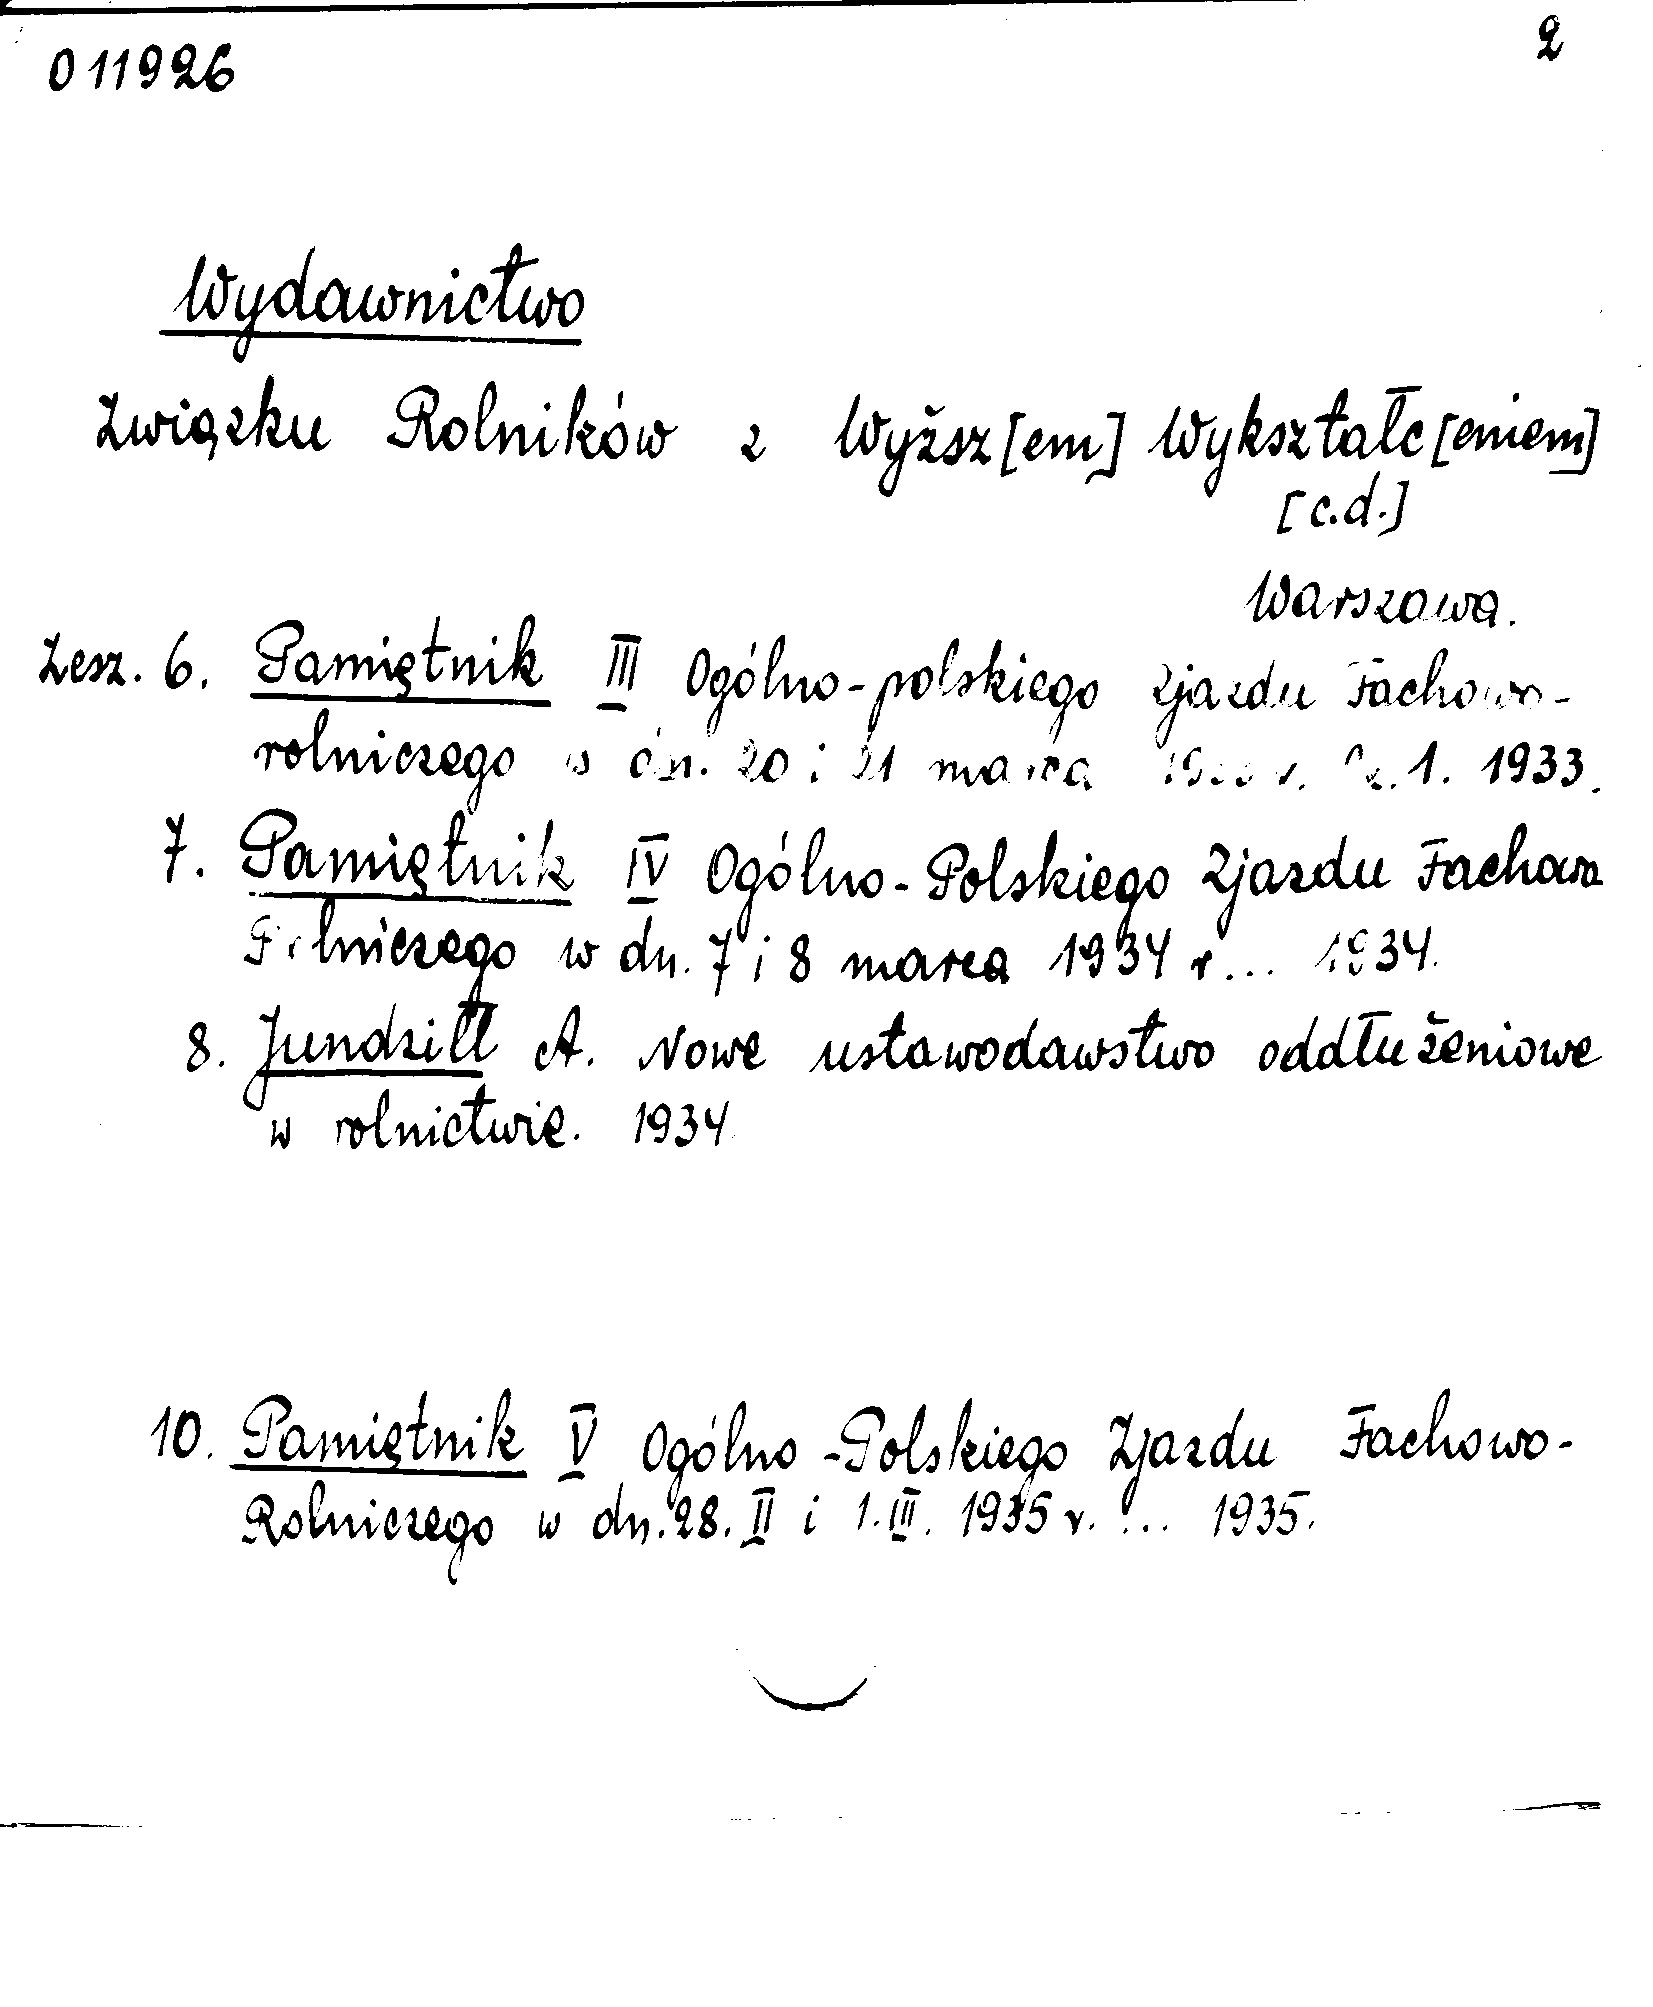 011926 2
Wydawnictwo
Związku Rolników z Wyższ[em] Wykształc[eniem]
[c.d.]
Warszawa.
Zesz. 6. Pamiętnik III Ogólno-polskiego Zjazdu Fachowo-
rolniczego w dn. 20 i 21 marca 1933 r. Cz. 1. 1933.
7. Pamiętnik IV Ogólno-Polskiego Zjazdu Fachowo
Rolniczego w dn. 7 i 8 marca 1934 r... 1934.
8. Jundziłł A. Nowe ustawodawstwo oddłużeniowe
w rolnictwie. 1934
10. Pamiętnik V Ogólno-Polskiego Zjazdu Fachowo-
Rolniczego w dn. 28. II i 1. III. 1935 r. ... 1935.